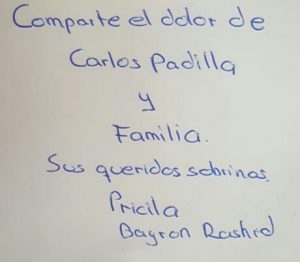 Comparte el dolor de
Carlos Padilla
y
Familia.
Sus queridos sobrinas
Pricila
Bayron Rashid